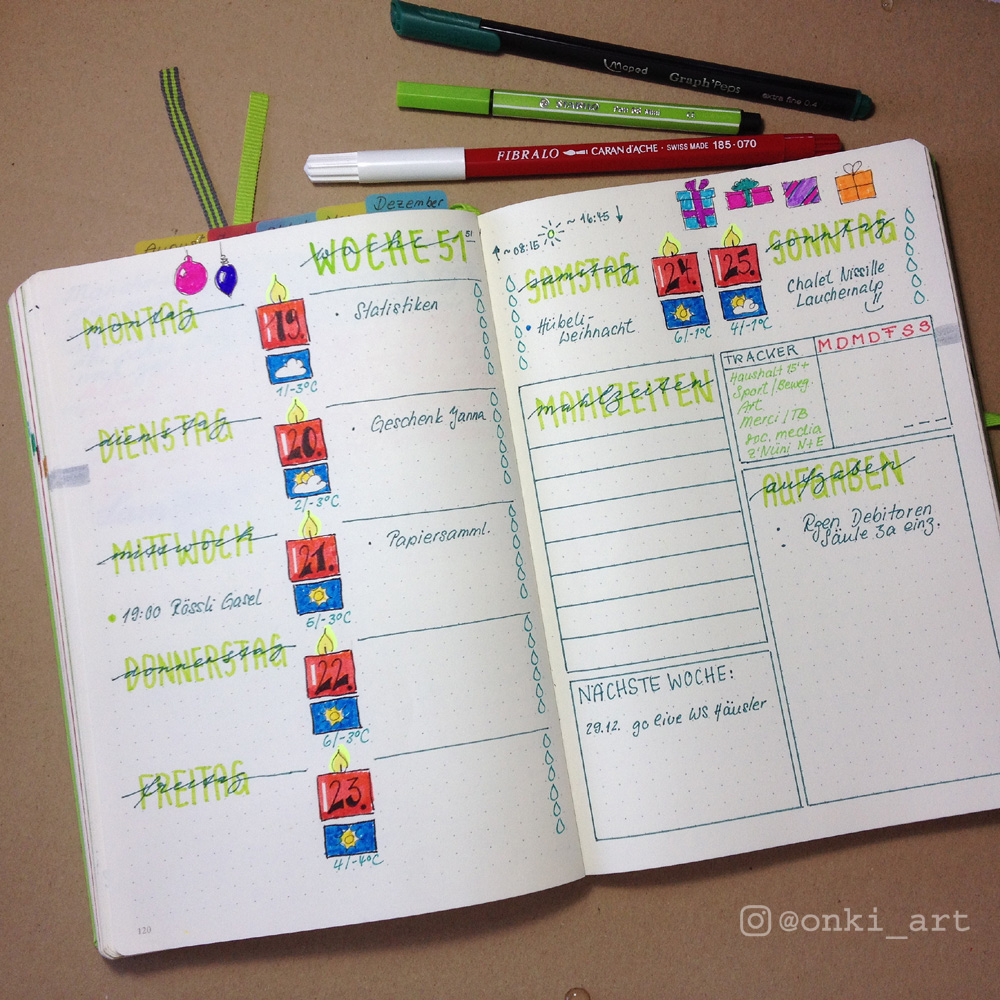 Maped Graph'Peps extra fine 0.4
STABILO Pen 68 mini
FIBRALO CARAN d'ACHE SWISS MADE 185·070
August
Dezember
WOCHE 51
woche 51
MONTAG
montag
19.
1/-3°C
• Statistiken
DIENSTAG
dienstag
20.
2/-3°C
• Geschenk Janna
MITTWOCH
mittwoch
21.
5/-3°C
• Papiersamml.
• 19:00 Rössli Gasel
DONNERSTAG
donnerstag
22.
6/-3°C
FREITAG
freitag
23.
4/-4°C
120
↑ ~ 08:15
~ 16:45 ↓
SAMSTAG
samstag
24.
6/-1°C
• Hübeli-
weihnacht
SONNTAG
sonntag
25.
4/-1°C
Chalet Nissille
Lauchernalp
MAHLZEITEN
mahlzeiten
TRACKER
M D M D F S S
Haushalt 15'+
Sport/Beweg.
Art
Merci/TB
soc. media
Z'Nüni N+E
AUFGABEN
aufgaben
• Rgen Debitoren
• Säule 3a einz.
NÄCHSTE WOCHE:
29.12. go live WS Häusler
@onki_art